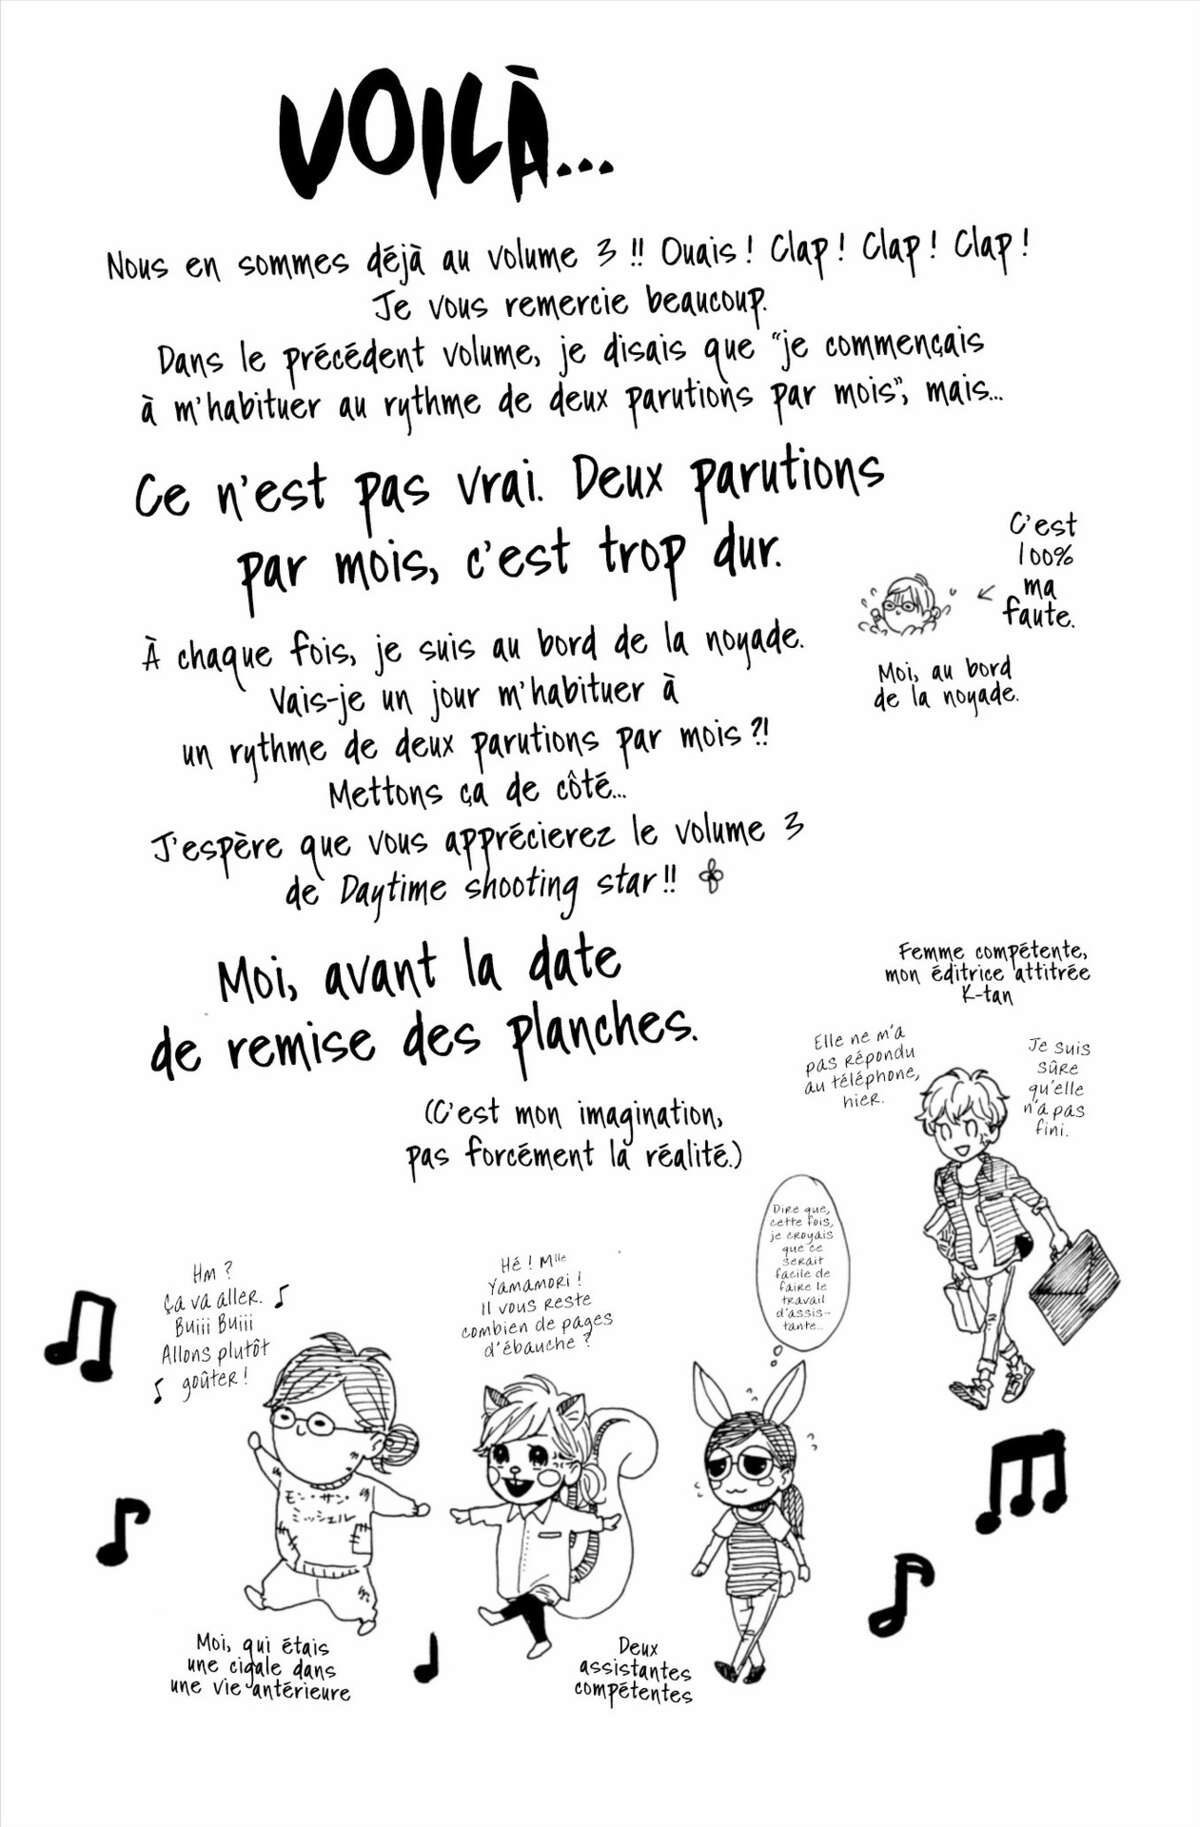 VOILÀ...
Nous en sommes déjà au volume 3 !! Ouais ! Clap ! Clap ! Clap !
Je vous remercie beaucoup.
Dans le précédent volume, je disais que "je commençais
à m'habituer au rythme de deux parutions par mois", mais...
Ce n'est pas vrai. Deux parutions
par mois, c'est trop dur.
C'est
100%
ma
faute.
Moi, au bord
de la noyade.
À chaque fois, je suis au bord de la noyade.
Vais-je un jour m'habituer à
un rythme de deux parutions par mois ?!
Mettons ça de côté...
J'espère que vous apprécierez le volume 3
de Daytime shooting star !!
Moi, avant la date
de remise des planches.
(C'est mon imagination,
pas forcément la réalité.)
Femme compétente,
mon éditrice attitrée
K-tan
Elle ne m'a
pas répondu
au téléphone,
hier.
Je suis
sûre
qu'elle
n'a pas
fini.
Hm ?
Ça va aller. ♪
Buiii Buiii
Allons plutôt
♪ goûter !
Hé ! Mlle
Yamamori !
Il vous reste
combien de pages
d'ébauche ?
Dire que,
cette fois,
je croyais
que ce
serait
facile de
faire le
travail
d'assis-
tante...
モン・サン・
ミッシェル
Moi, qui étais
une cigale dans
une vie antérieure
Deux
assistantes
compétentes